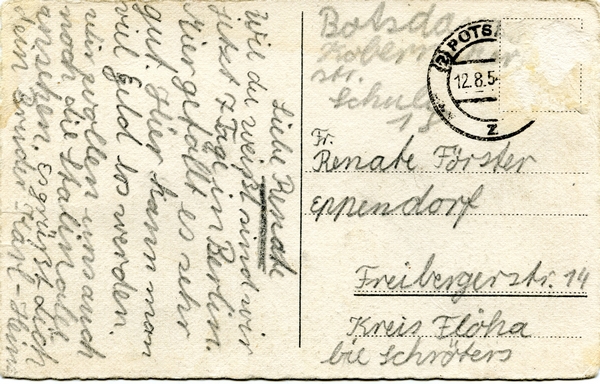 Liebe Renate
Wie du weißt sind wir
jetzt 7 Tag in Berlin.
Hier gefällt es sehr
gut. Hier kann man
viel Geld los werden.
wir wollen uns auch
noch die Stalinalle
ansehen. Es grüßt dich
dein Bruder Karl-Heinz
Botsda
str.
Schul
18
(2) POTS
12.8.5
z
Fr.
Renate Förster
Eppendorf
Freibergerstr. 14
Kreis Flöha
bie Schröters